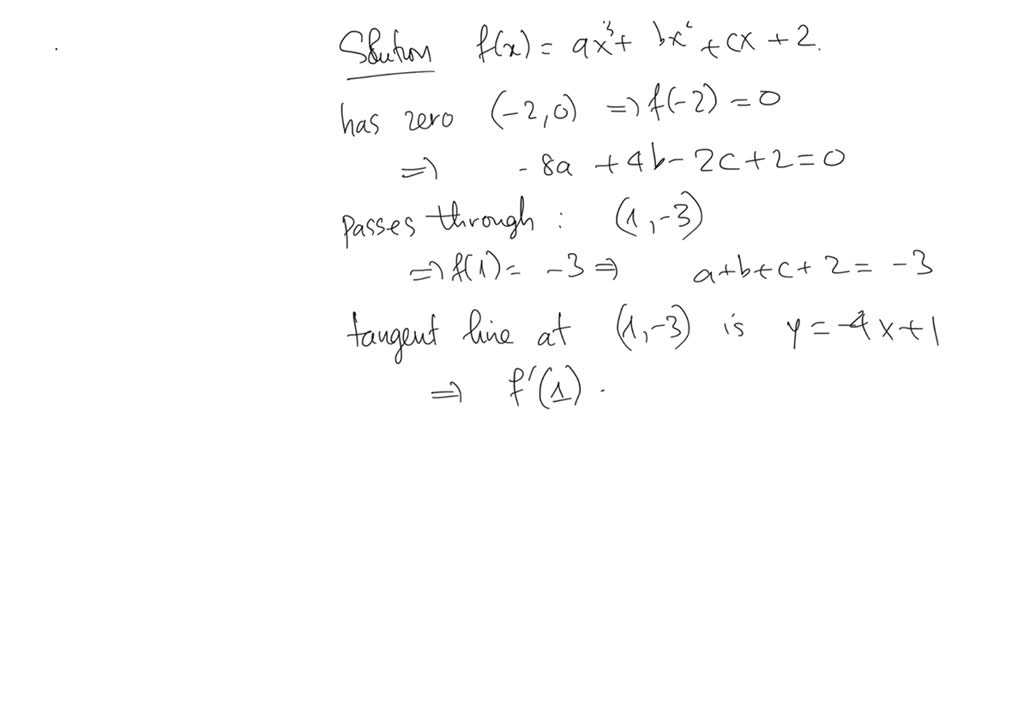 Solution f(x) = ax³ + bx² + cx + 2.
has zero (-2,0) => f(-2) = 0
=> - 8a + 4b - 2c + 2 = 0
passes through : (1,-3)
=> f(1) = -3 => a+b+c+2 = -3
tangent line at (1,-3) is y = -4x+1
=> f'(1) .